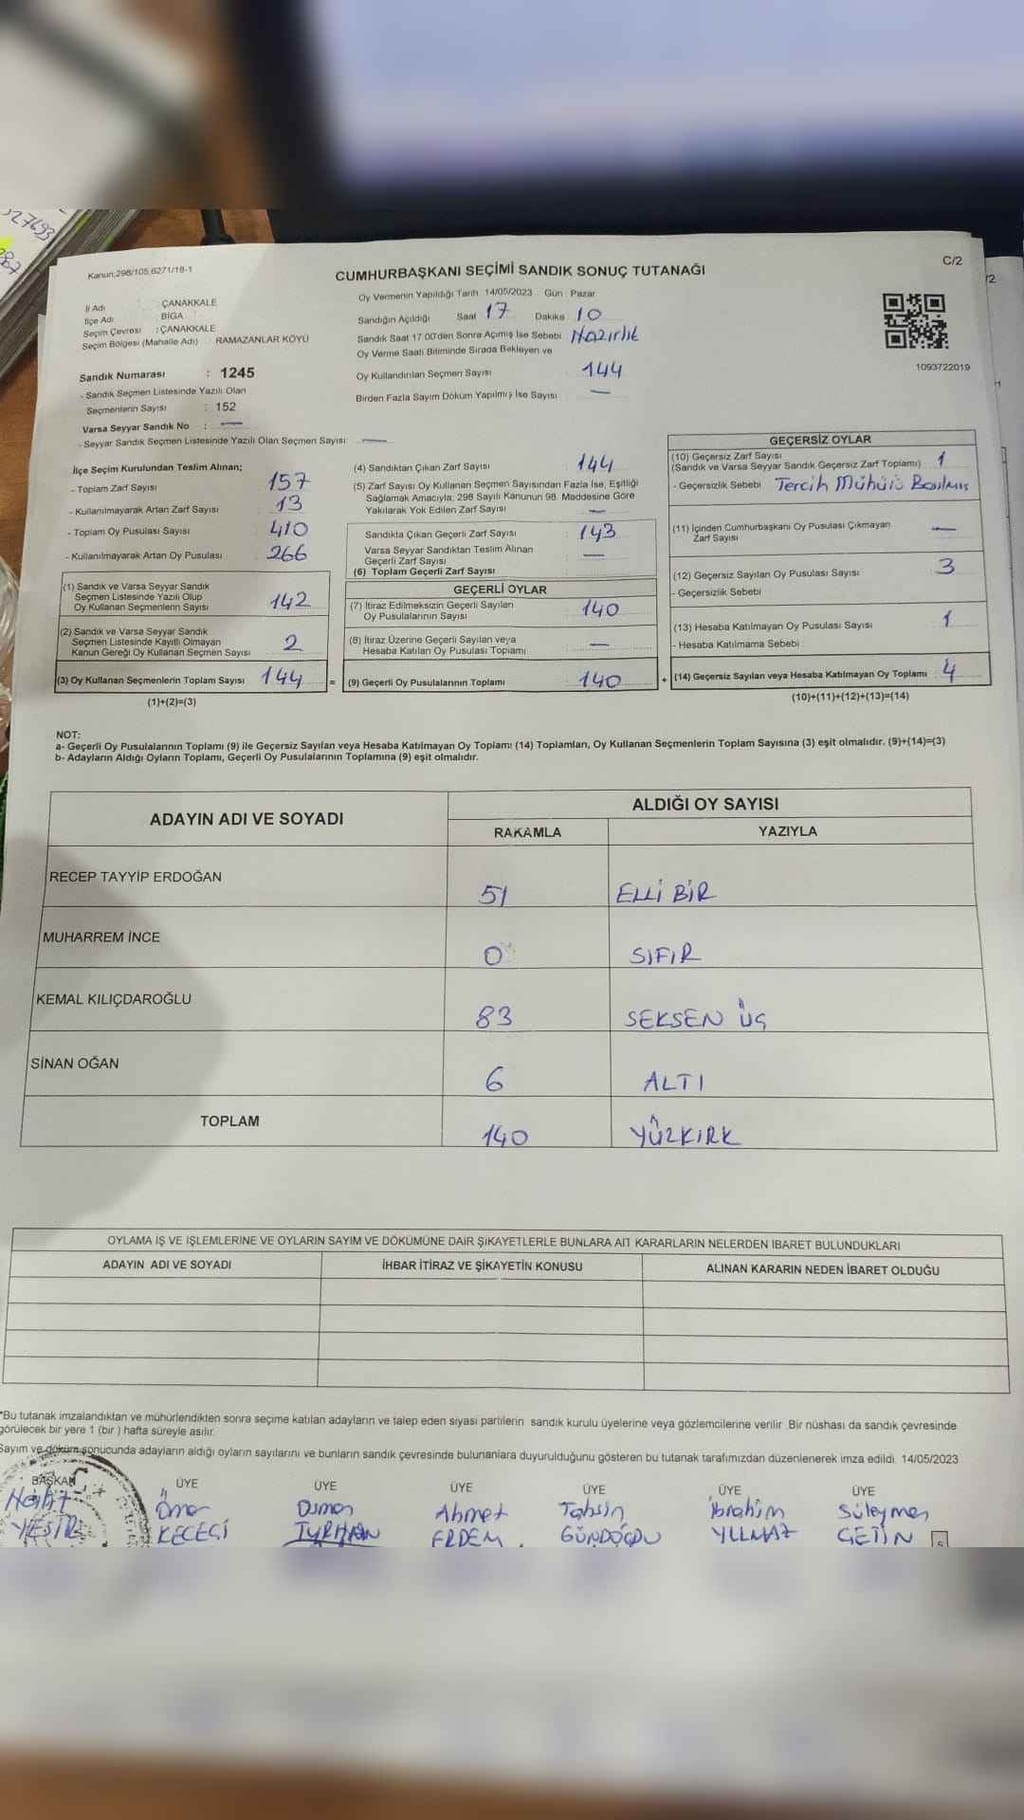 327693
Kanun:298/105,6271/18-1
CUMHURBAŞKANI SEÇİMİ SANDIK SONUÇ TUTANAĞI
C/2
İl Adı : ÇANAKKALE
İlçe Adı : BİGA
Seçim Çevresi : ÇANAKKALE
Seçim Bölgesi (Mahalle Adı) RAMAZANLAR KÖYÜ
Sandık Numarası : 1245
- Sandık Seçmen Listesinde Yazılı Olan
Seçmenlerin Sayısı : 152
Varsa Seyyar Sandık No : —
- Seyyar Sandık Seçmen Listesinde Yazılı Olan Seçmen Sayısı: —
Oy Vermenin Yapıldığı Tarih 14/05/2023 Gün : Pazar
Sandığın Açıldığı Saat 17 Dakika 10
Sandık Saat 17.00'den Sonra Açımış İse Sebebi Hazırlık
Oy Verme Saati Bitiminde Sırada Bekleyen ve
Oy Kullandırılan Seçmen Sayısı 144
Birden Fazla Sayım Döküm Yapılmış İse Sayısı —
1093722019
İlçe Seçim Kurulundan Teslim Alınan;
- Toplam Zarf Sayısı 157
- Kullanılmayarak Artan Zarf Sayısı 13
- Toplam Oy Pusulası Sayısı 410
- Kullanılmayarak Artan Oy Pusulası 266
(1) Sandık ve Varsa Seyyar Sandık
Seçmen Listesinde Yazılı Olup
Oy Kullanan Seçmenlerin Sayısı 142
(2) Sandık ve Varsa Seyyar Sandık
Seçmen Listesinde Kayıtlı Olmayan
Kanun Gereği Oy Kullanan Seçmen Sayısı 2
(3) Oy Kullanan Seçmenlerin Toplam Sayısı 144 =
(1)+(2)=(3)
(4) Sandıktan Çıkan Zarf Sayısı 144
(5) Zarf Sayısı Oy Kullanan Seçmen Sayısından Fazla İse, Eşitliği
Sağlamak Amacıyla; 298 Sayılı Kanunun 98. Maddesine Göre
Yakılarak Yok Edilen Zarf Sayısı —
Sandıkta Çıkan Geçerli Zarf Sayısı 143
Varsa Seyyar Sandıktan Teslim Alınan
Geçerli Zarf Sayısı —
(6) Toplam Geçerli Zarf Sayısı
GEÇERLİ OYLAR
(7) İtiraz Edilmeksizin Geçerli Sayılan
Oy Pusulalarının Sayısı 140
(8) İtiraz Üzerine Geçerli Sayılan veya
Hesaba Katılan Oy Pusulası Toplamı —
(9) Geçerli Oy Pusulalarının Toplamı 140 +
GEÇERSİZ OYLAR
(10) Geçersiz Zarf Sayısı
(Sandık ve Varsa Seyyar Sandık Geçersiz Zarf Toplamı) 1
- Geçersizlik Sebebi Tercih Mühürü Basılmış
(11) İçinden Cumhurbaşkanı Oy Pusulası Çıkmayan
Zarf Sayısı —
(12) Geçersiz Sayılan Oy Pusulası Sayısı 3
- Geçersizlik Sebebi
(13) Hesaba Katılmayan Oy Pusulası Sayısı 1
- Hesaba Katılmama Sebebi
(14) Geçersiz Sayılan veya Hesaba Katılmayan Oy Toplamı 4
(10)+(11)+(12)+(13)=(14)
NOT:
a- Geçerli Oy Pusulalarının Toplamı (9) ile Geçersiz Sayılan veya Hesaba Katılmayan Oy Toplamı (14) Toplamları, Oy Kullanan Seçmenlerin Toplam Sayısına (3) eşit olmalıdır. (9)+(14)=(3)
b- Adayların Aldığı Oyların Toplamı, Geçerli Oy Pusulalarının Toplamına (9) eşit olmalıdır.
ADAYIN ADI VE SOYADI ALDIĞI OY SAYISI
RAKAMLA YAZIYLA
RECEP TAYYİP ERDOĞAN 51 ELLİ BİR
MUHARREM İNCE 0 SIFIR
KEMAL KILIÇDAROĞLU 83 SEKSEN ÜÇ
SİNAN OĞAN 6 ALTI
TOPLAM 140 YÜZKIRK
OYLAMA İŞ VE İŞLEMLERİNE VE OYLARIN SAYIM VE DÖKÜMÜNE DAİR ŞİKAYETLERLE BUNLARA AİT KARARLARIN NELERDEN İBARET BULUNDUKLARI
ADAYIN ADI VE SOYADI İHBAR İTİRAZ VE ŞİKAYETİN KONUSU ALINAN KARARIN NEDEN İBARET OLDUĞU
*Bu tutanak imzalandıktan ve mühürlendikten sonra seçime katılan adayların ve talep eden siyasi partilerin sandık kurulu üyelerine veya gözlemcilerine verilir. Bir nüshası da sandık çevresinde
görülecek bir yere 1 (bir ) hafta süreyle asılır.
Sayım ve döküm sonucunda adayların aldığı oyların sayılarını ve bunların sandık çevresinde bulunanlara duyurulduğunu gösteren bu tutanak tarafımızdan düzenlenerek imza edildi. 14/05/2023
BAŞKAN ÜYE ÜYE ÜYE ÜYE ÜYE ÜYE
Ömer Osman Ahmet Tahsin İbrahim Süleyman
KEÇECİ TURHAN ERDEM GÜNDOĞDU YILMAZ ÇETİN